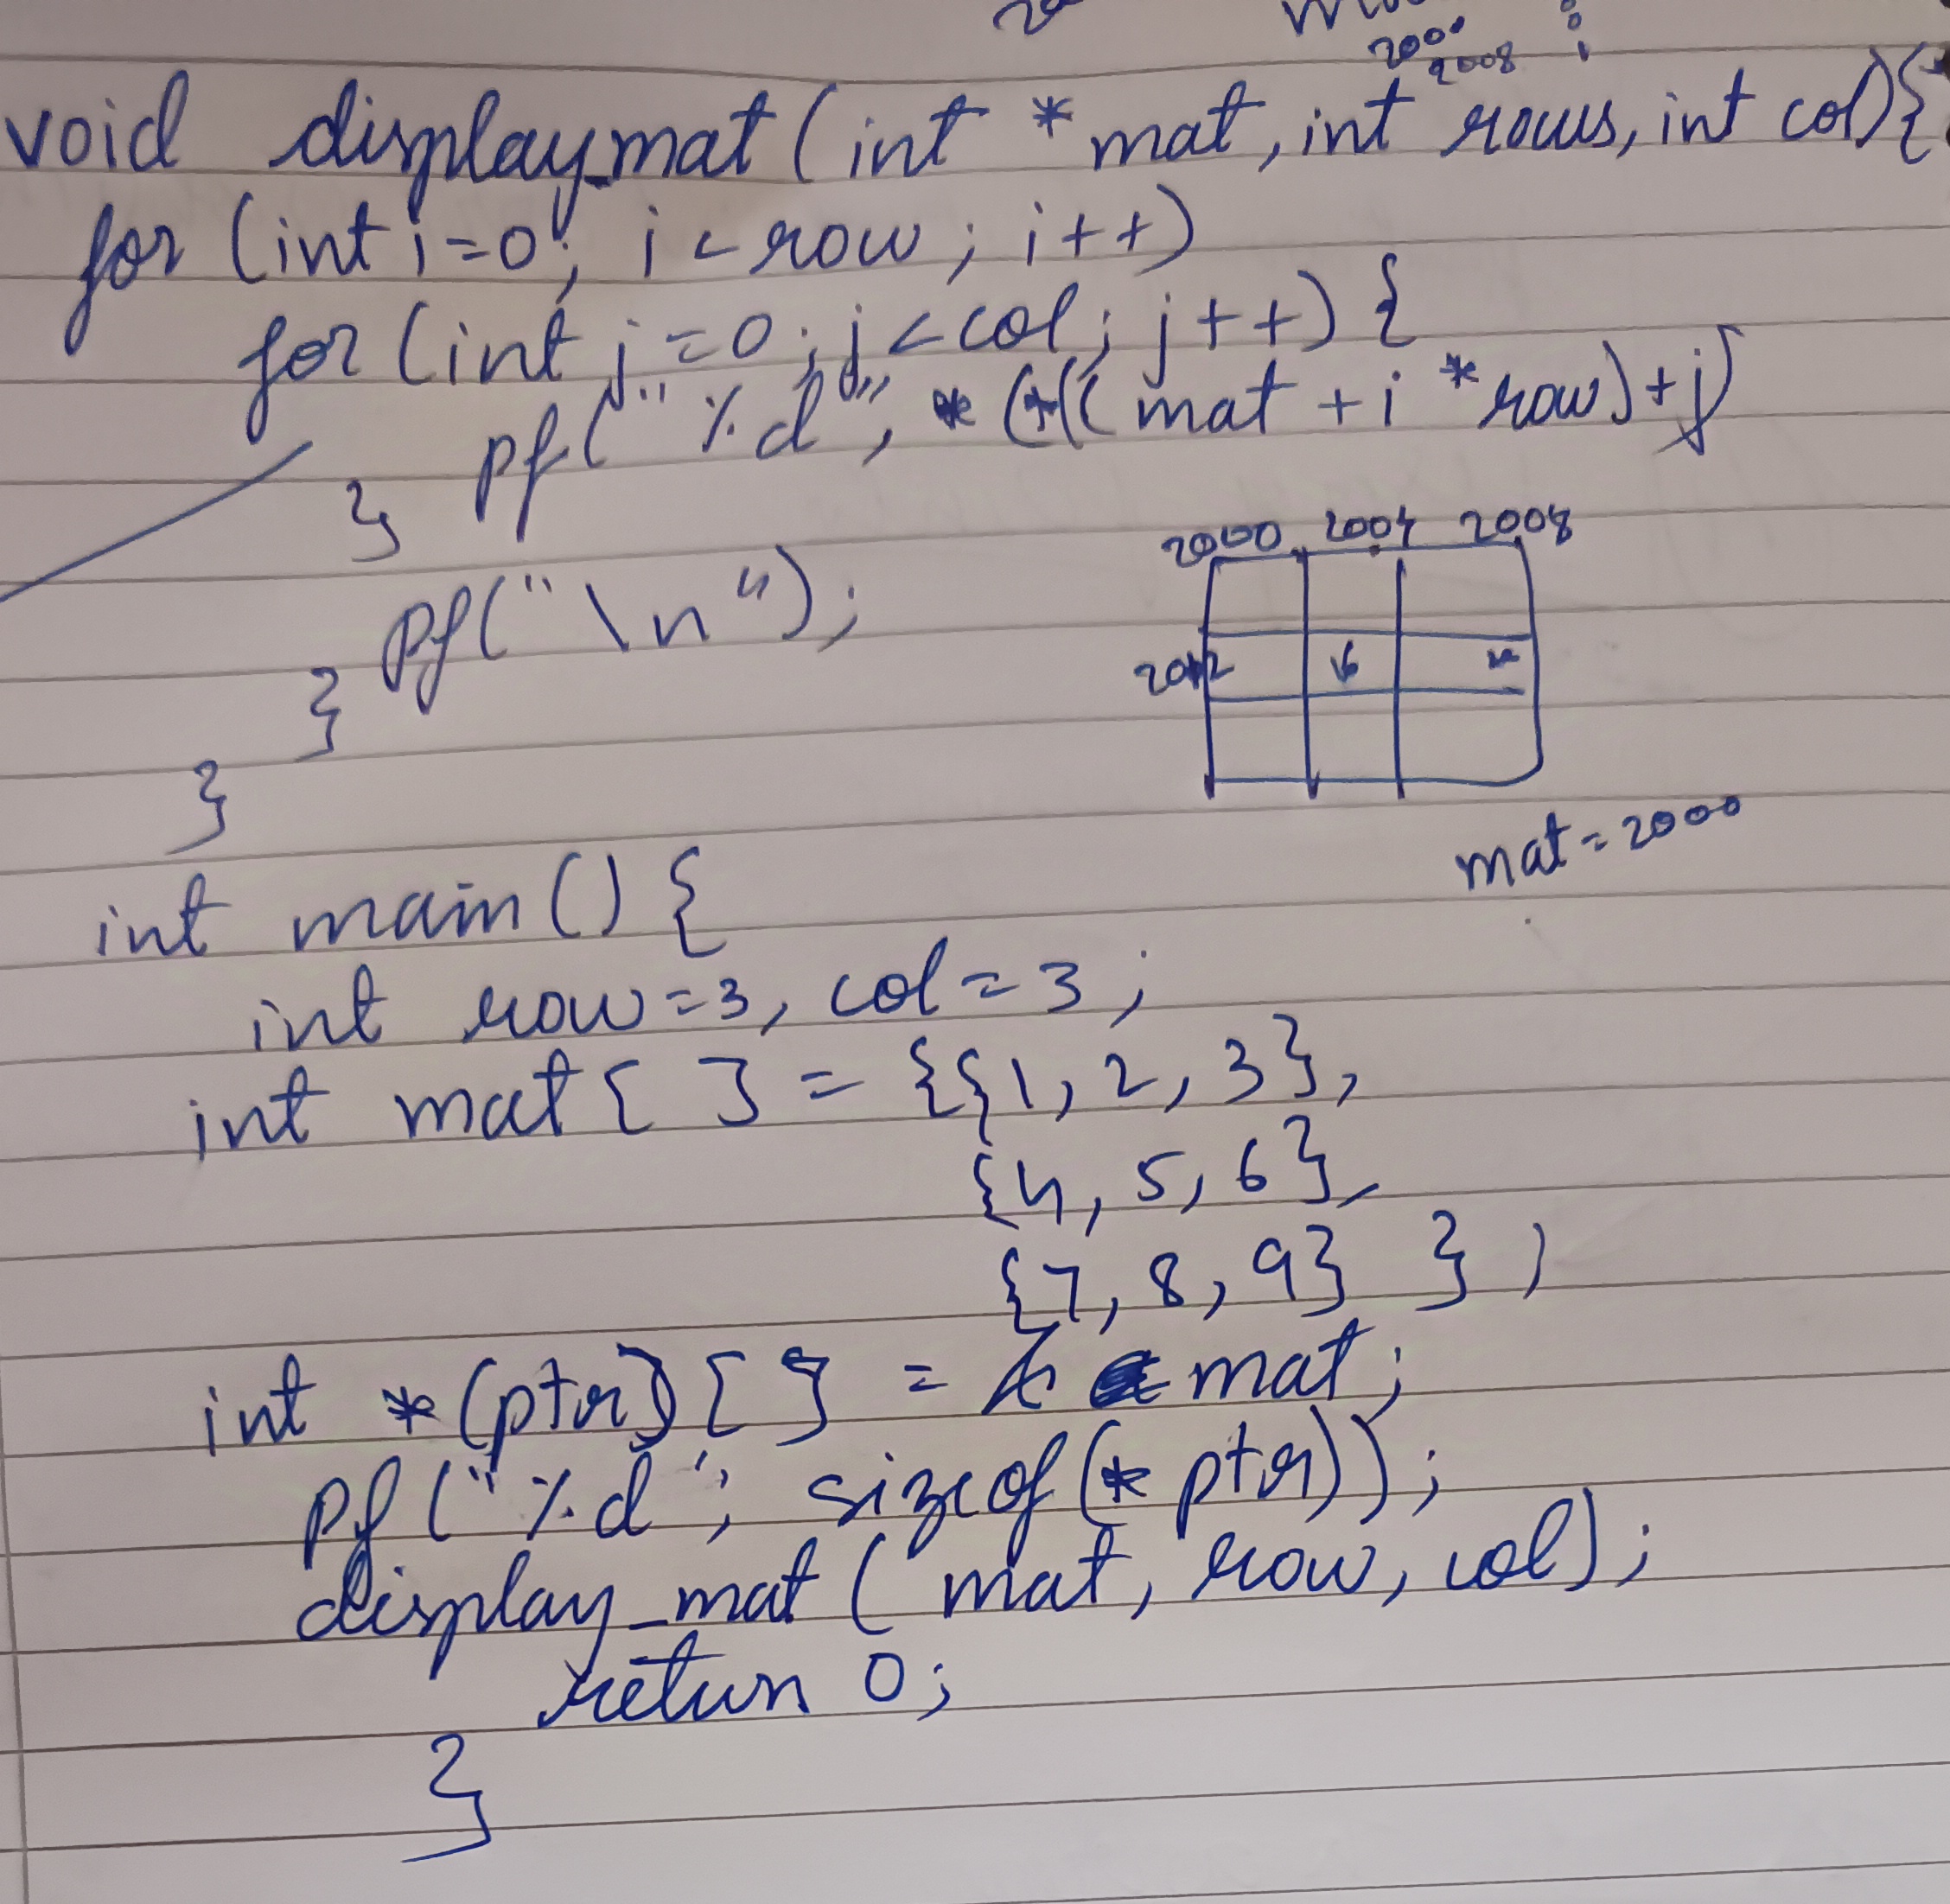 2000
2008
void display_mat (int *mat, int rows, int col){
for (int i=0; i < row; i++)
for (int j=0; j < col; j++) {
pf("%d", * (*((mat + i * row) + j)
}
pf("\n");
}
}
2000 2004 2008
2012
mat = 2000
int main() {
int row=3, col=3;
int mat[ ] = {{1, 2, 3},
{4, 5, 6},
{7, 8, 9} } ;
int *(ptr)[ ] = & mat;
pf("%d", sizeof(*ptr));
display_mat ( mat, row, col);
return 0;
}